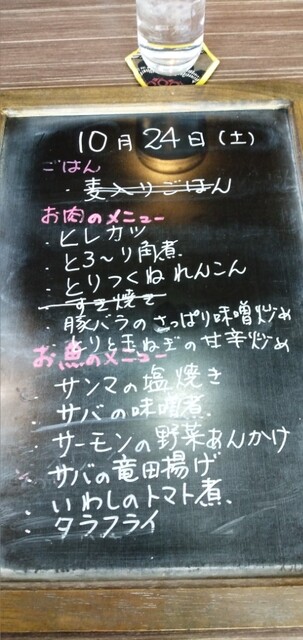 10月24日(土)
ごはん
・麦入りごはん
お肉のメニュー
・ヒレカツ
・とろ～り角煮
・とりつくねれんこん
・すき焼き
・豚バラのさっぱり味噌炒め
・とりと玉ねぎの甘辛炒め
お魚のメニュー
・サンマの塩焼き
・サバの味噌煮
・サーモンの野菜あんかけ
・サバの竜田揚げ
・いわしのトマト煮
・タラフライ